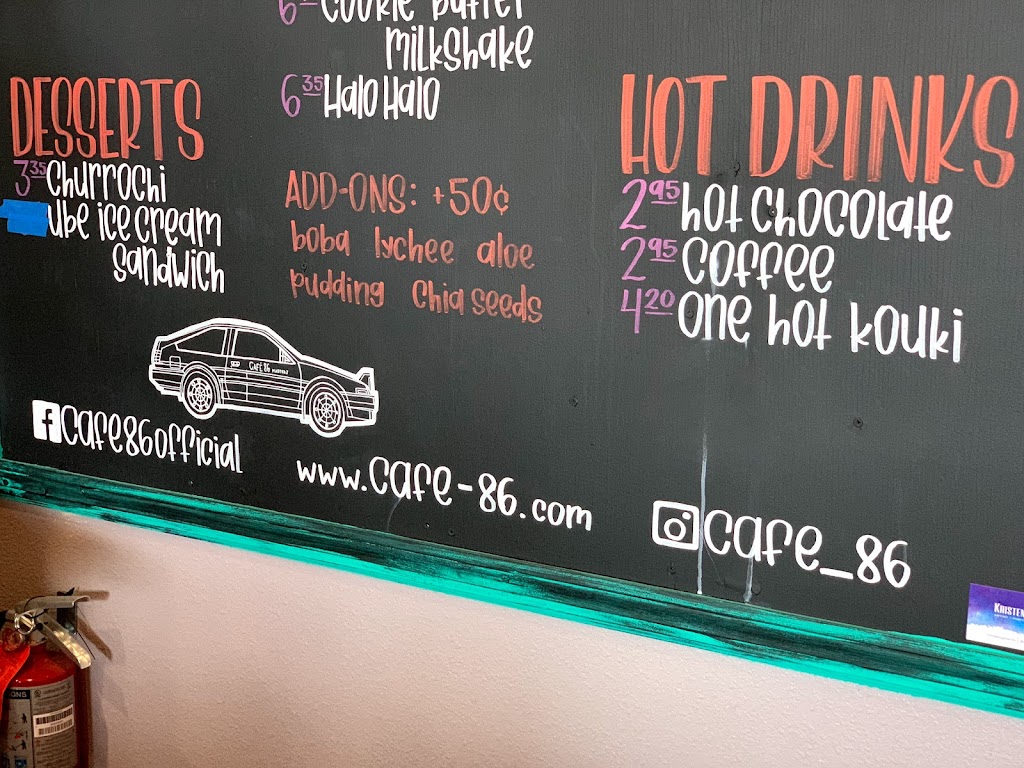 6 cookie butter
milkshake
6.35 Halo Halo
DESSERTS
3.35 Churrochi
ube ice cream
sandwich
ADD-ONS: +50¢
boba lychee aloe
pudding chia seeds
HOT DRINKS
2.95 hot chocolate
2.95 coffee
4.20 one hot kouki
CAFE 86
f cafe86official
www.cafe-86.com
cafe_86
KRISTEN